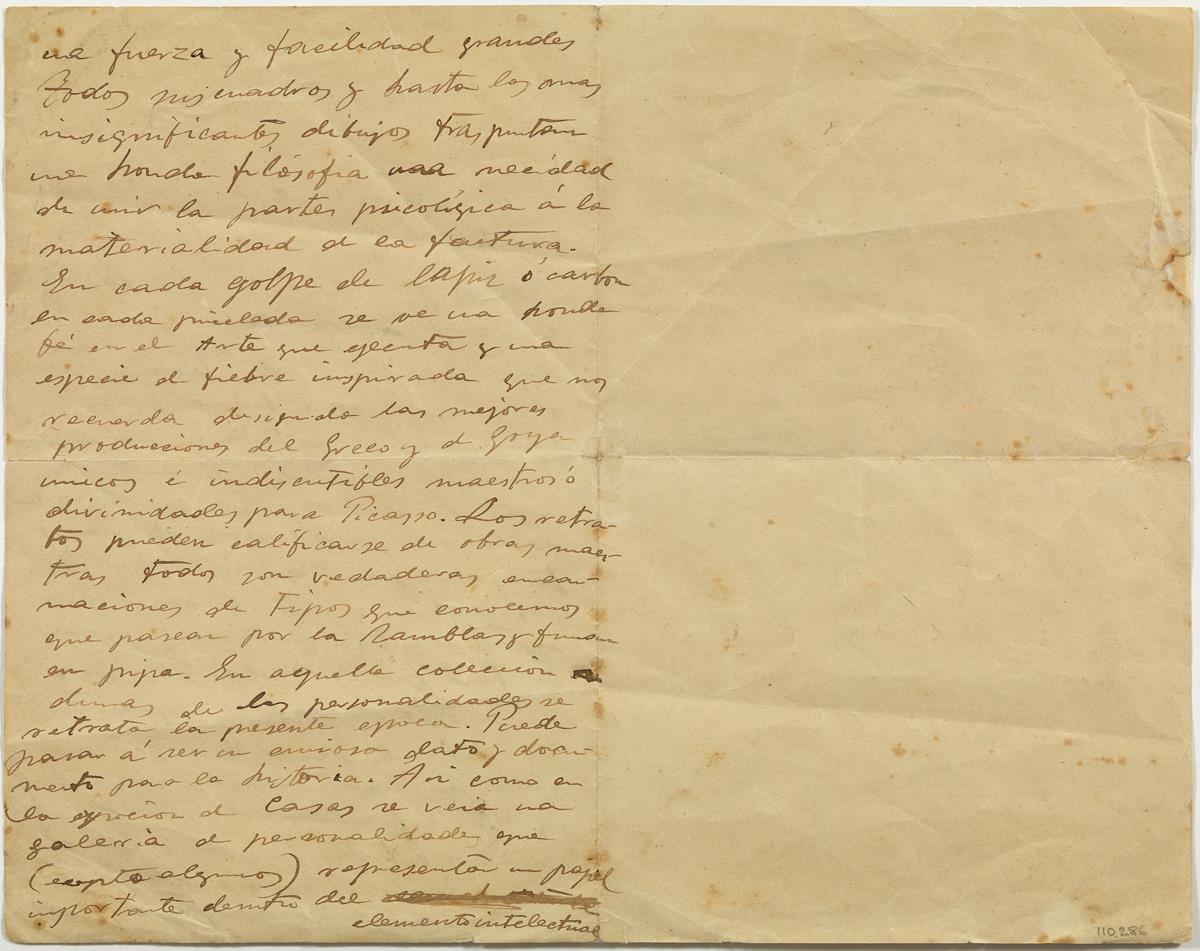 una fuerza y facilidad grandes
Todos sus cuadros y hasta los mas
insignificantes dibujos traspuntan
una honda filosofia una necidad
de unir la partes psicológica á la
materialidad d la factura.
En cada golpe de lapiz ó carbon
en cada pincelada se ve una honda
fé en el Arte que ejecuta y una
especie d fiebre inspirada que nos
recuerda desiguida las mejores
producciones del Greco y d Goya
unicos é indiscutibles maestros ó
divinidades para Picasso. Los retra-
tos pueden calificarse de obras maes-
tras todos son vedaderas encar-
naciones de Tipos que conocemos
que pasean por la Ramblas y fuman
en pipa. En aquella colección
demas de las personalidades se
retrata la presente epoca. Puede
pasar á ser un curioso dato y docu-
mento para la historia. Asi como en
la exposicion d Casas se veia una
galeria d personalidades que
(exepto algunos) representan un papel
importante dentro del
elemento intelectual
110.286